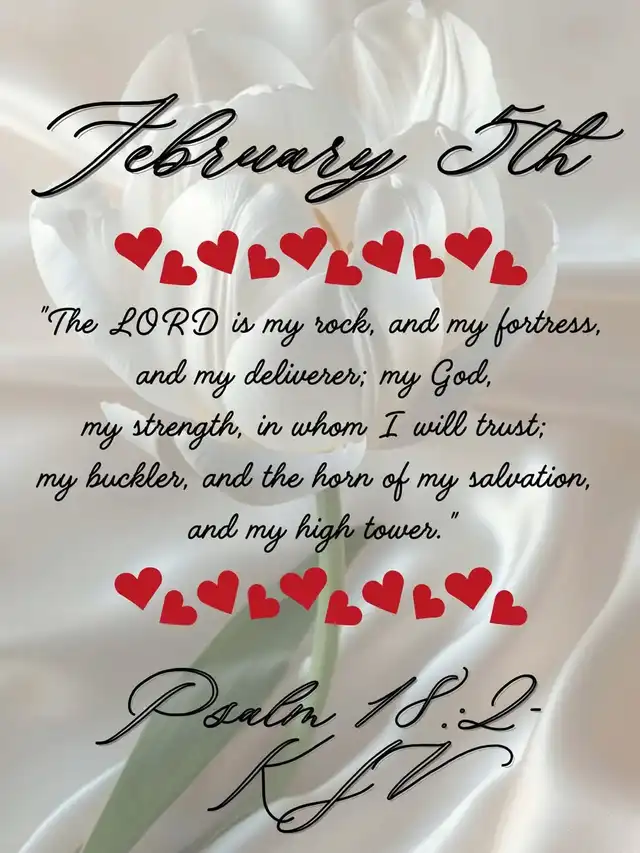 February 5th
"The LORD is my rock, and my fortress,
and my deliverer; my God,
my strength, in whom I will trust;
my buckler, and the horn of my salvation,
and my high tower."
Psalm 18:2-
KJV